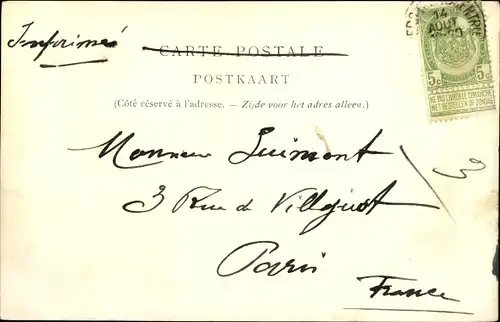 Imprimé
CARTE POSTALE
POSTKAART
(Côté réservé à l'adresse. — Zijde voor het adres alleen.)
14
AOUT
5c 5c
NE PAS LIVRER LE DIMANCHE
NIET BESTELLEN OP ZONDAG
Monsieur Guimont
3 Rue de Villejust
Paris
France
3